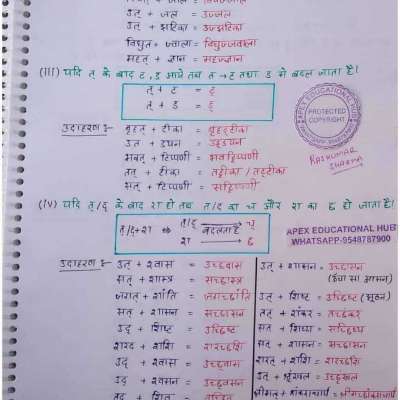 उत् + जल = उज्जल
उत् + झटिका = उज्झटिका
विद्युत् + ज्वाला = विद्युज्ज्वाला
महत् + ज्ञान = महज्ज्ञान
(iii) यदि त् के बाद ट, ड आये तब त → ट् तथा ड् में बदल जाता है।
त् + ट = ट्ट
त् + ड = ड्ड
उदाहरण :-
बृहत् + टीका = बृहट्टीका
उत् + डयन = उड्डयन
भवत् + टिप्पणी = भवट्टिप्पणी
तत् + टीका = तट्टीका / तट्टीका
सत् + टिप्पणी = सट्टिप्पणी
APEX EDUCATIONAL HUB
PROTECTED
COPYRIGHT
RAJKUMAR
SHARMA
(iv) यदि त्/द् के बाद श हो तब त/द का च और श का छ हो जाता है।
त्/द्+श ⇒ त्/द् बदलता है च्
श → छ
APEX EDUCATIONAL HUB
WHATSAPP-9548787900
उदाहरण :-
उत् + श्वास = उच्छवास
सत् + शास्त्र = सच्छास्त्र
जगत् + शांति = जगच्छांति
सत् + शासन = सच्छासन
उद् + शिष्ट = उच्छिष्ट
शरद + शशि = शरच्छशि
उद् + श्वास = उच्छ्वास
उद् + श्वसन = उच्छ्वसन
उत् + शासन = उच्छासन
(ऊँचा सा आसन)
उत् + शिष्ट = उच्छिष्ट (जूठन)
तत् + शंकर = तच्छंकर
सत् + शासन = सच्छासन
शरत् + शशि = शरच्छशि
उत् + शृंखल = उच्छृंखल
श्रीमत् + शंकराचार्य = श्रीमच्छंकराचार्य